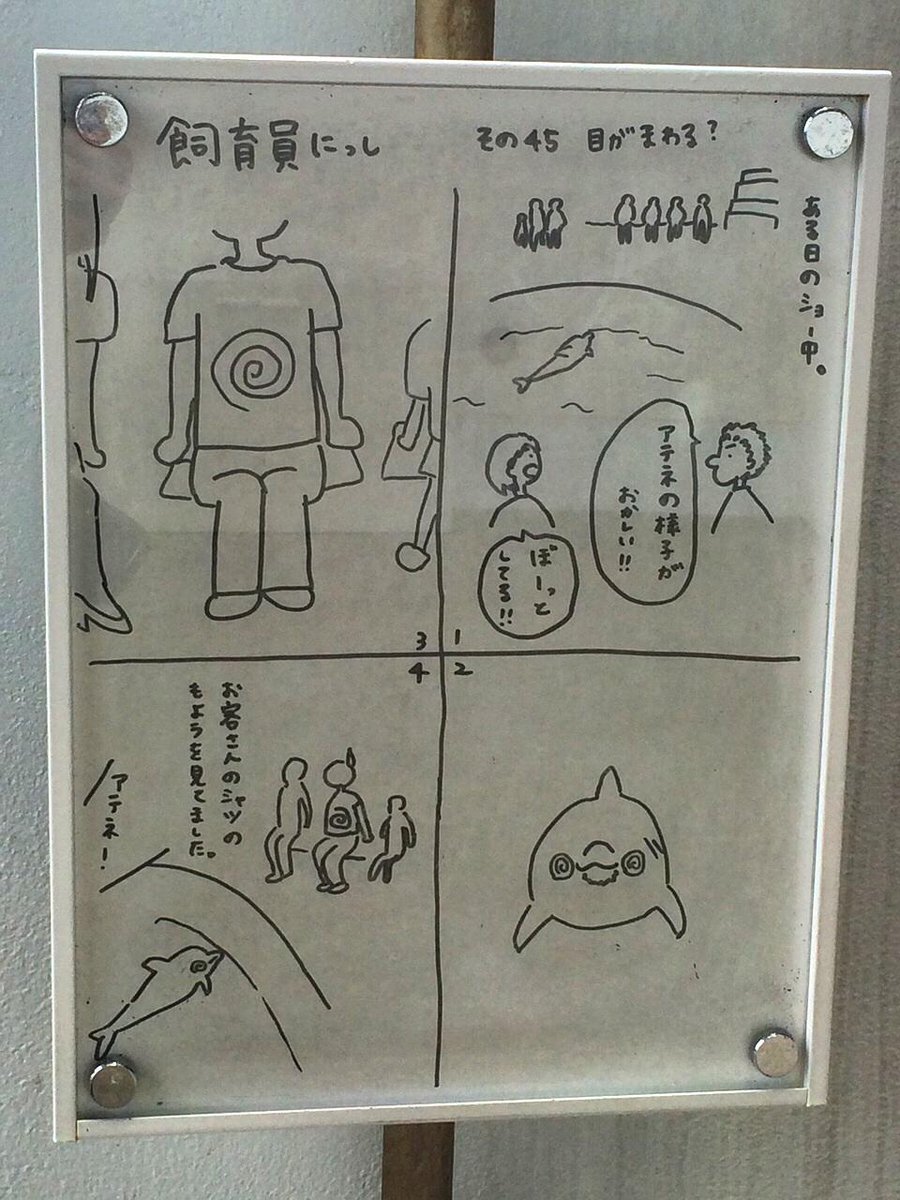 飼育員にっし
その45 目がまわる?
ある日のショー中。
アテネの様子が
おかしい!!
ぼーっと
してる!!
1
2
3
4
お客さんのシャツの
もようを見てました。
アテネ!